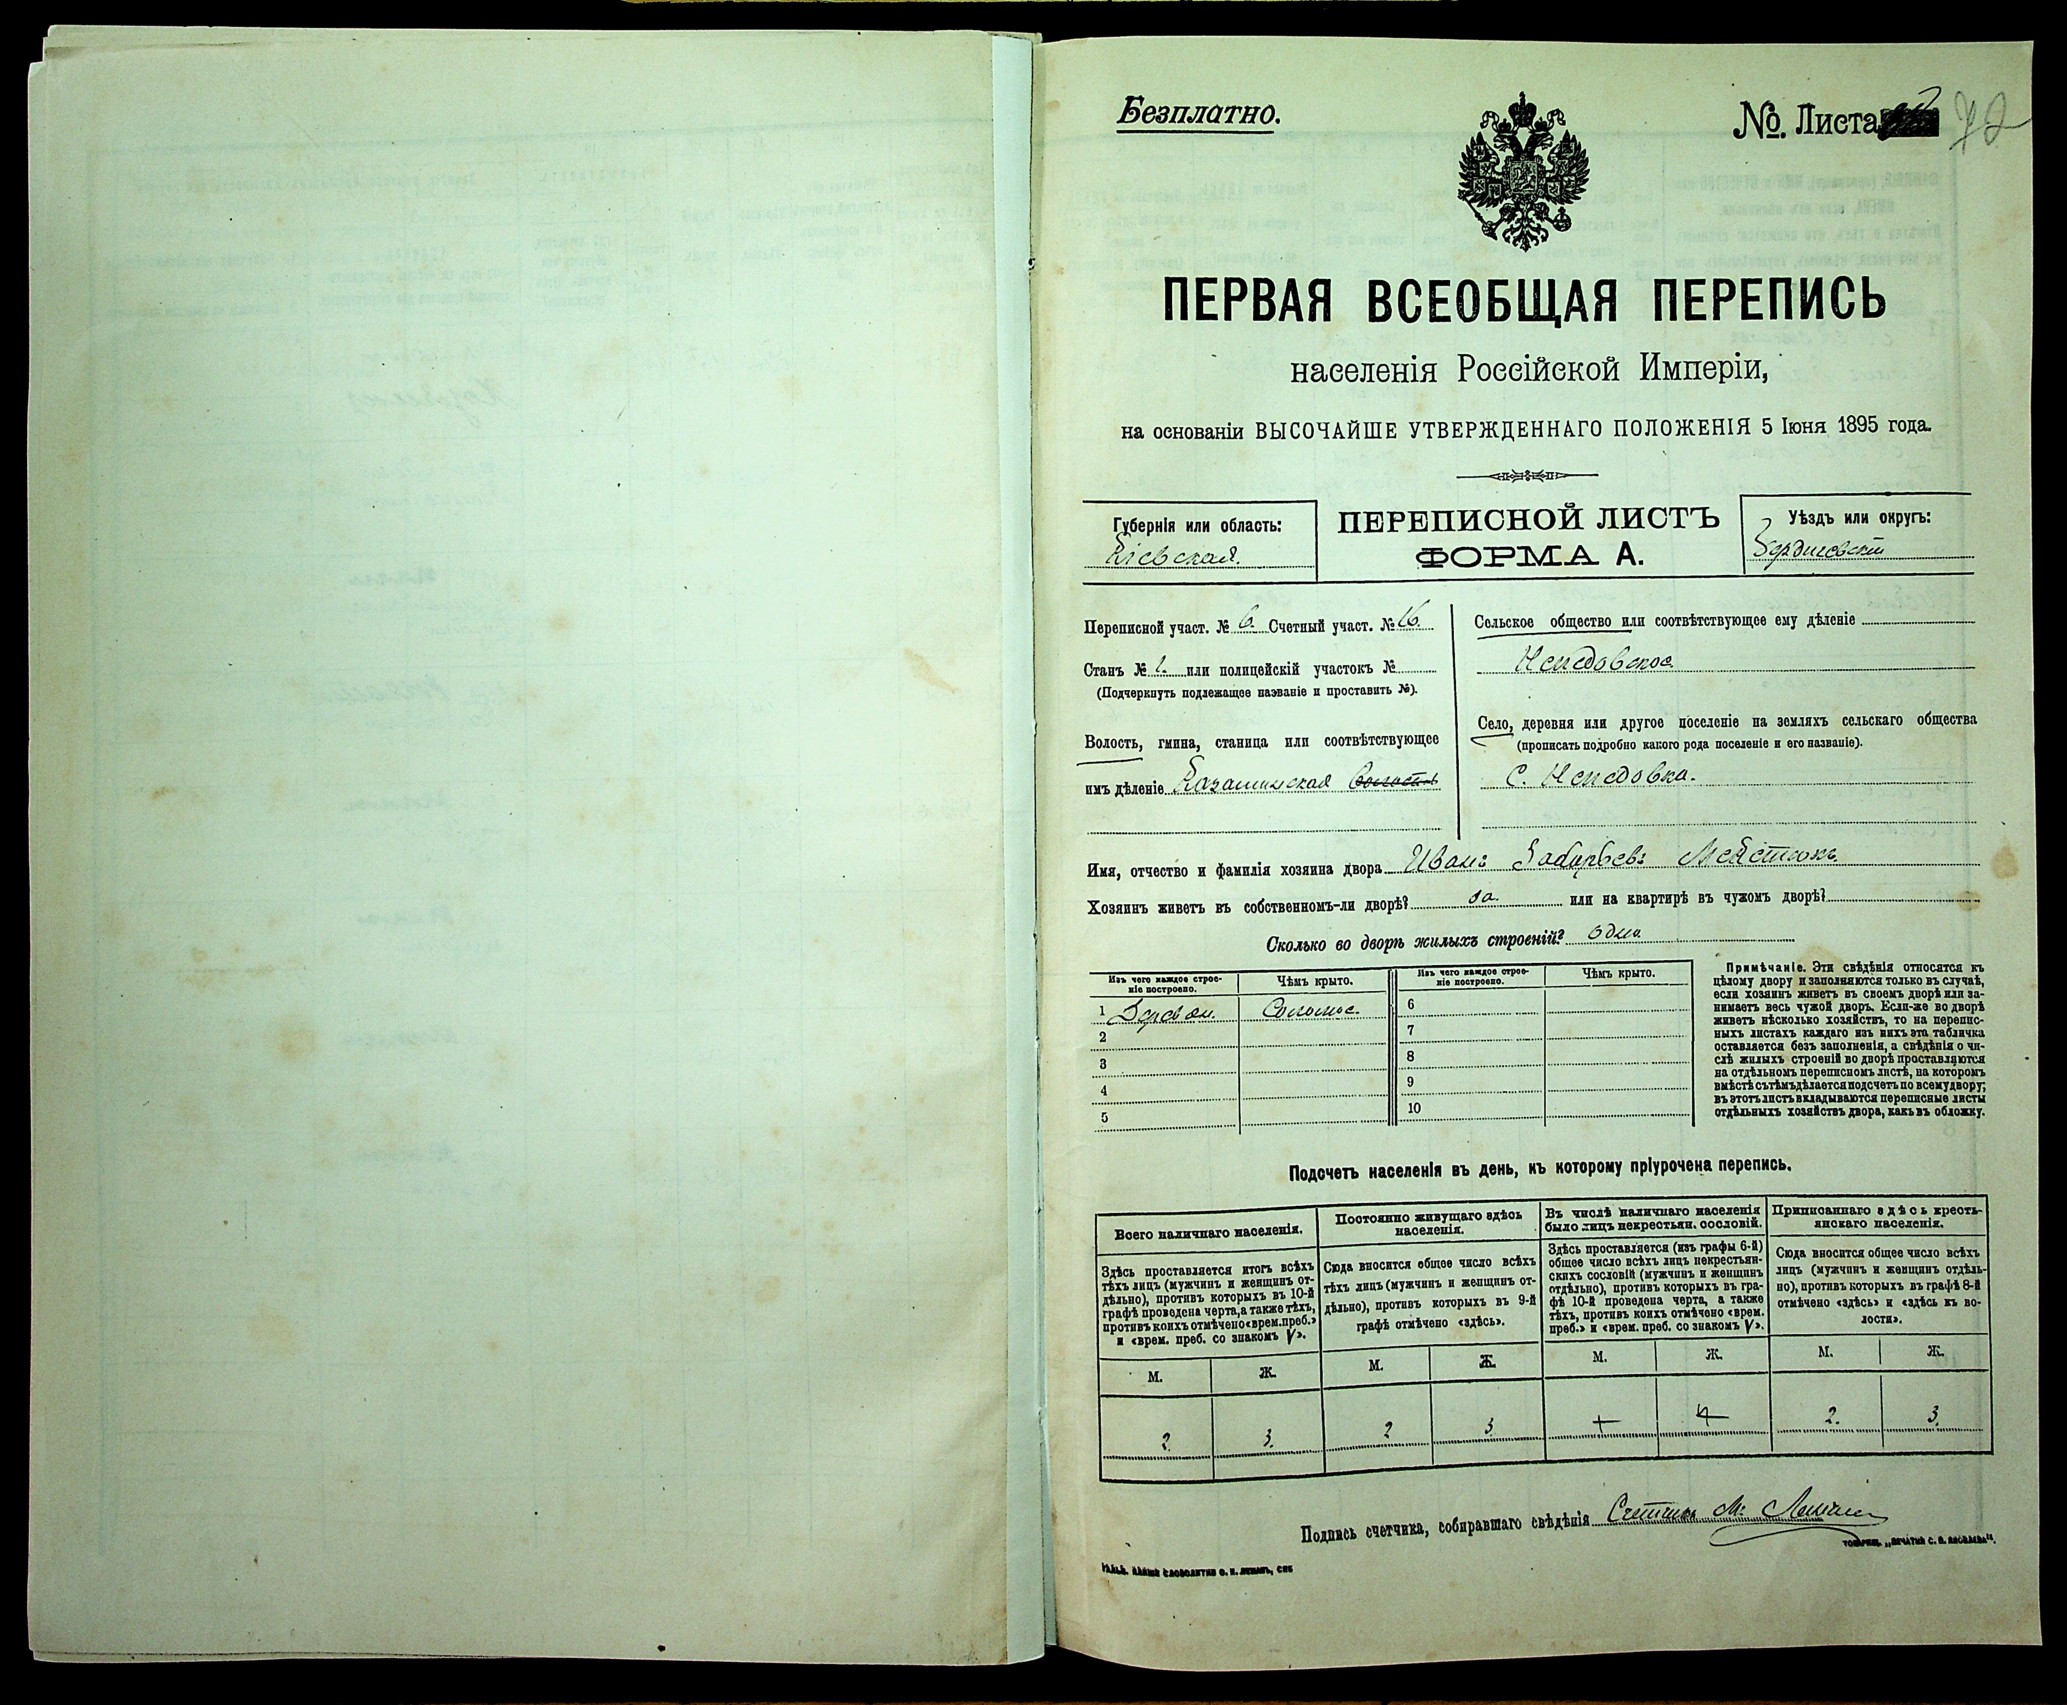 Безплатно.
№. Листа 72
ПЕРВАЯ ВСЕОБЩАЯ ПЕРЕПИСЬ
населенія Россійской Имперіи,
на основаніи ВЫСОЧАЙШЕ УТВЕРЖДЕННАГО ПОЛОЖЕНІЯ 5 Іюня 1895 года.
Губернія или область:
Кіевская.
ПЕРЕПИСНОЙ ЛИСТЪ
ФОРМА А.
Уѣздъ или округъ:
Бердичевскій
Переписной участ. № 6. Счетный участ. № 16.
Станъ № 2. или полицейскій участокъ №
(Подчеркнуть подлежащее названіе и проставить №).
Волость, гмина, станица или соотвѣтствующее
имъ дѣленіе Казатинская волость
Сельское общество или соотвѣтствующее ему дѣленіе
Непедовское
Село, деревня или другое поселеніе на земляхъ сельскаго общества
(прописать подробно какого рода поселеніе и его названіе).
С. Непедовка.
Имя, отчество и фамилія хозяина двора Иванъ
Хозяинъ живетъ въ собственномъ-ли дворѣ? да. или на квартирѣ въ чужомъ дворѣ?
Сколько во дворѣ жилыхъ строеній? одно
Изъ чего каждое строеніе построено.
Чѣмъ крыто.
Изъ чего каждое строеніе построено.
Чѣмъ крыто.
1 Дерев ян. Соломое. 6
2 7
3 8
4 9
5 10
Примѣчаніе. Эти свѣдѣнія относятся къ
цѣлому двору и заполняются только въ случаѣ,
если хозяинъ живетъ въ своемъ дворѣ или за-
нимаетъ весь чужой дворъ. Если-же во дворѣ
живетъ нѣсколько хозяйствъ, то на перепис-
ныхъ листахъ каждаго изъ нихъ эта табличка
оставляется безъ заполненія, а свѣдѣнія о чи-
слѣ жилыхъ строеній во дворѣ проставляются
на отдѣльномъ переписномъ листѣ, на которомъ
вмѣстѣ съ тѣмъ дѣлается подсчетъ по всему двору;
въ этотъ листъ вкладываются переписные листы
отдѣльныхъ хозяйствъ двора, какъ въ обложку.
Подсчетъ населенія въ день, къ которому пріурочена перепись.
Всего наличнаго населенія.
Здѣсь проставляется итогъ всѣхъ
тѣхъ лицъ (мужчинъ и женщинъ от-
дѣльно), противъ которыхъ въ 10-й
графѣ проведена черта, а также тѣхъ,
противъ коихъ отмѣчено «врем. преб.»
и «врем. преб. со знакомъ V».
Постоянно живущаго здѣсь
населенія.
Сюда вносится общее число всѣхъ
тѣхъ лицъ (мужчинъ и женщинъ от-
дѣльно), противъ которыхъ въ 9-й
графѣ отмѣчено «здѣсь».
Въ числѣ наличнаго населенія
было лицъ некрестьян. сословій.
Здѣсь проставляется (изъ графы 6-й)
общее число всѣхъ лицъ некрестьян-
скихъ сословій (мужчинъ и женщинъ
отдѣльно), противъ которыхъ въ гра-
фѣ 10-й проведена черта, а также
тѣхъ, противъ коихъ отмѣчено «врем.
преб.» и «врем. преб. со знакомъ V».
Приписаннаго здѣсь кресть-
янскаго населенія.
Сюда вносится общее число всѣхъ
лицъ (мужчинъ и женщинъ отдѣль-
но), противъ которыхъ въ графѣ 8-й
отмѣчено «здѣсь» и «здѣсь въ во-
лости».
М. Ж. М. Ж. М. Ж. М. Ж.
2. 3. 2 3 2. 3.
Подпись счетчика, собиравшаго свѣдѣнія Счетчикъ М.